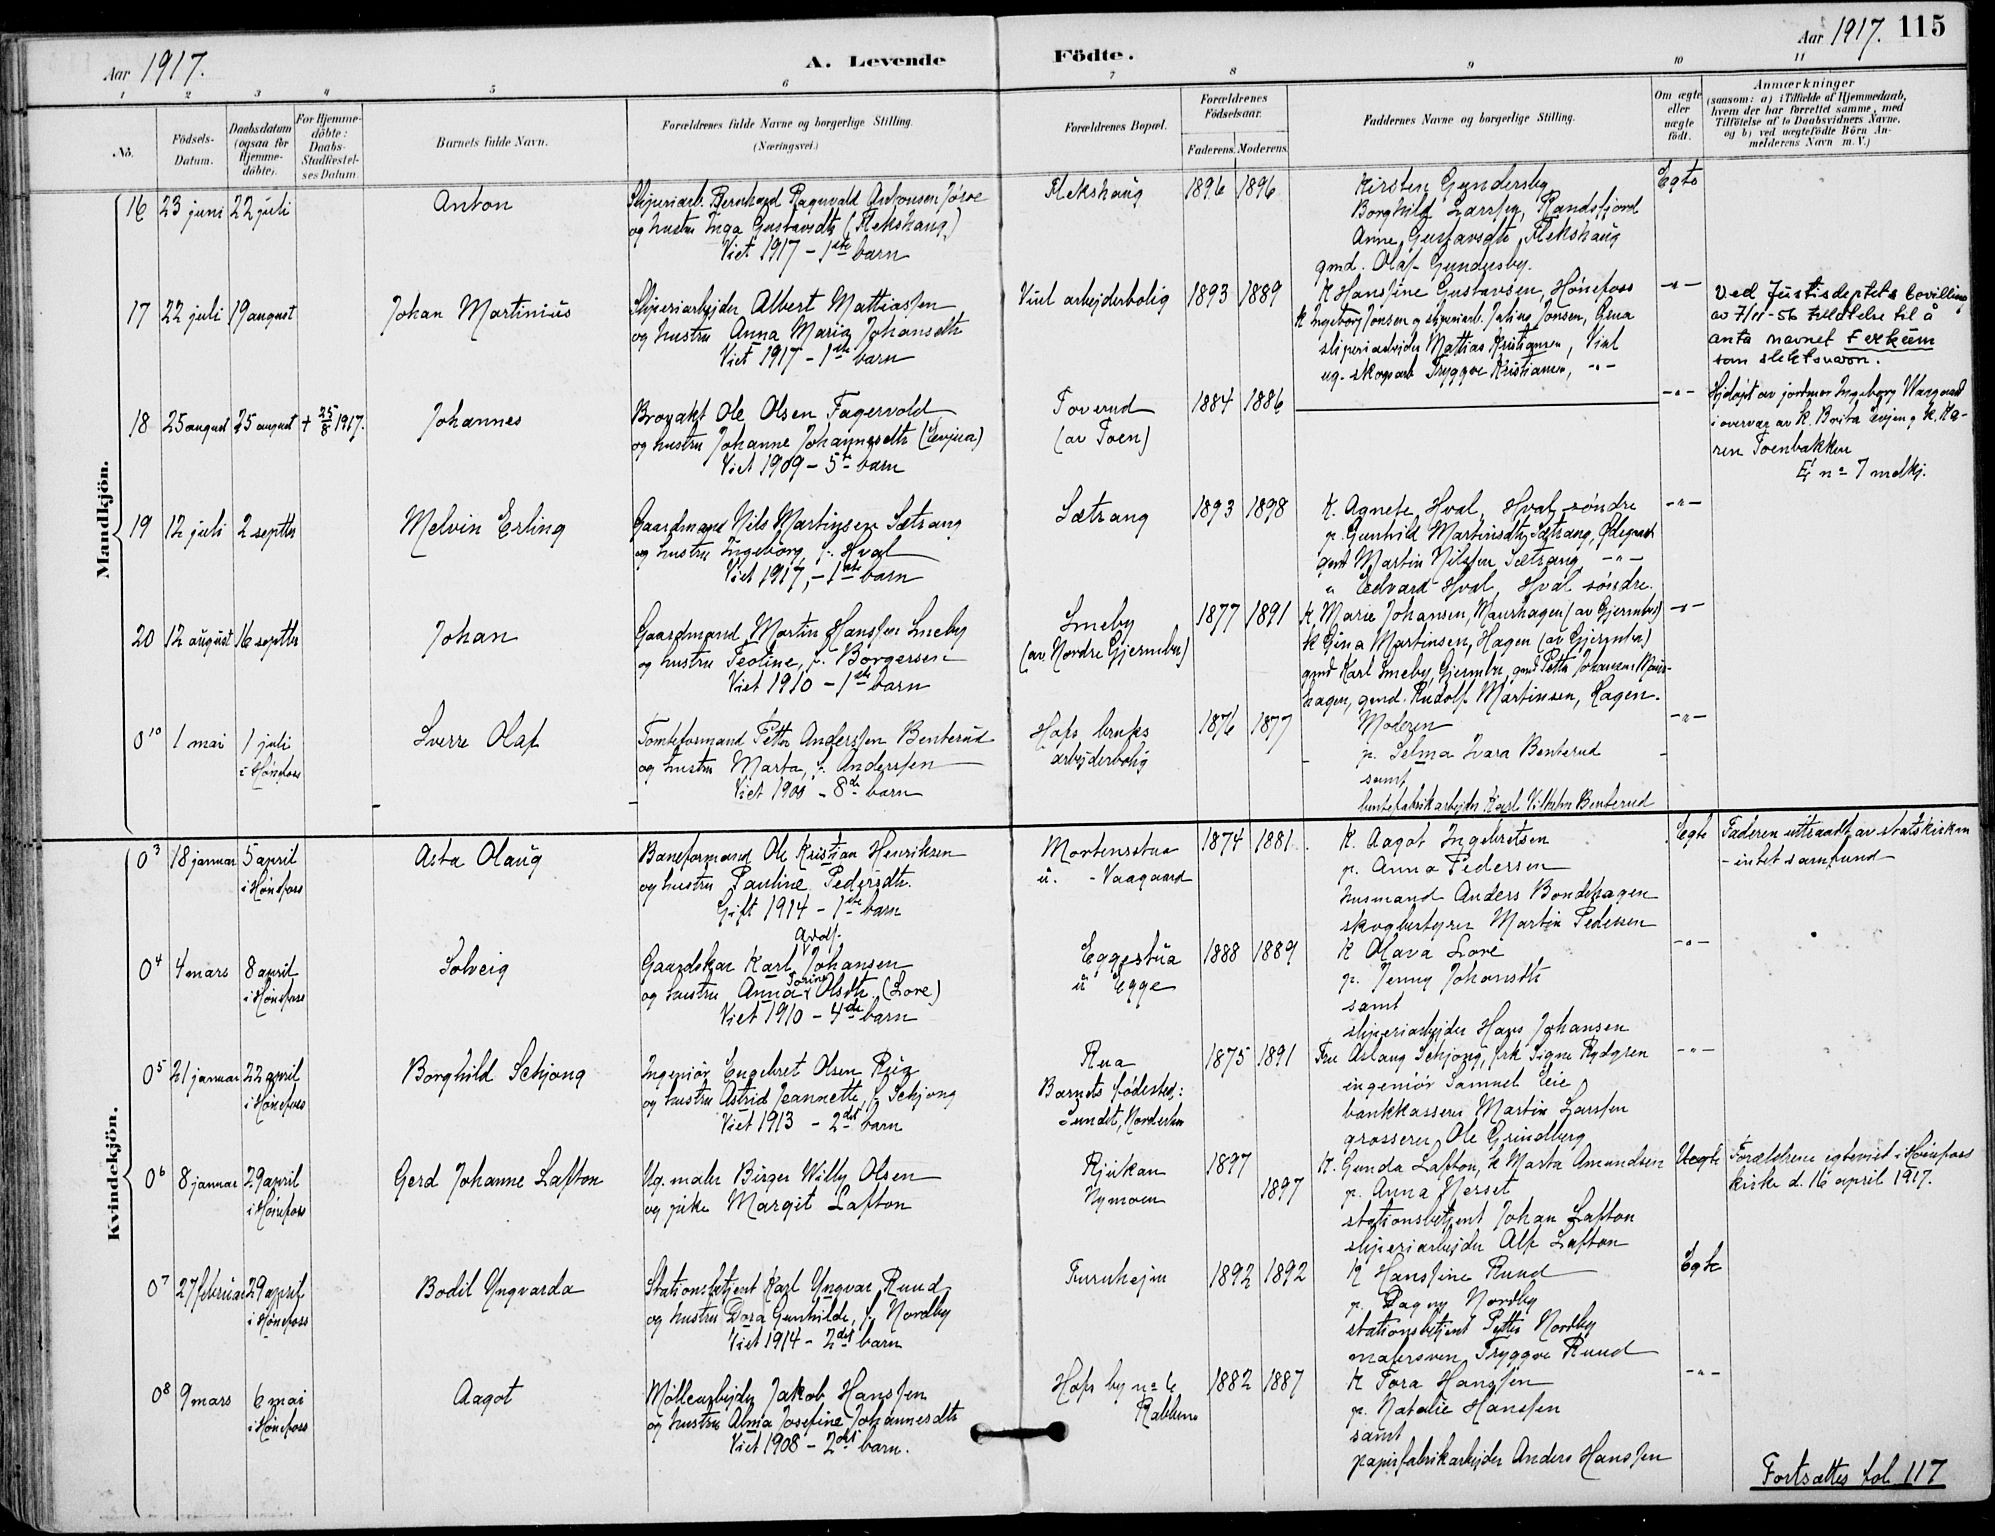 Aar 1917.
A. Levende Födte.
Aar 1917. 115
1 2 3 4 5 6 7 8 9 10 11
No.
Födsels-
Datum.
Daabsdatum
(ogsaa for
Hjemme-
döbte).
For Hjemme-
döbte:
Daabs-
Stadfæstel-
ses Datum
Barnets fulde Navn.
Forældrenes fulde Navne og borgerlige Stilling.
(Næringsvei.)
Forældrenes Bopæl.
Forældrenes
Födselsaar.
Faderens. Moderens.
Faddernes Navne og borgerlige Stilling.
Om ægte
eller
uægte
födt.
Anmærkninger
(saasom: a) i Tilfælde af Hjemmedaab,
hvem der har forrettet samme, med
Tilföielse af to Daabsvidners Navne,
og b) ved uægtefödte Börn An-
melderens Navn m. V.)
Mandkjön.
16 23 juni 22 juli
Anton
Sliperiarb. Bernhard Ragnvald Antonsen
og hustru Inga Gustavsdtr (Flekshaug)
Viet 1917 - 1ste barn
Flekshaug
1896 1896
Kirsten Gundersby
Borghild Larssen, Randsfjord
Anne Gustavsdtr, Flekshaug
gmd. Olaf Gundersby.
Egte
17 22 juli 19 august
Johan Martinius
Sliperiarbejder Albert Mattiassen
og hustru Anna Maria Johansdtr
Viet 1917 - 1ste barn
Viul arbejderbolig
1893 1889
K Hansine Gustavsen, Hönefoss
K Ingeborg Jonsen, sliperiarb. Jonsen,
sliperiarbejder Mattias Kristiansen, Viul
ug. skogsarb Tryggve Kristiansen, -"-
-"-
Ved Justisdeptets bevilling
av 7/11-56 tillatelse til å
anta navnet Ferkéen
som slektsnavn.
18 25 august 25 august + 25/8 1917.
Johannes
Brovakt Ole Olsen Fagervold
og hustru Johanne Johannesdtr
Viet 1909 - 5te barn
Toverud
(av Toen)
1884 1886
-"-
Hjdöpt av jordmor Ingeborg Waagaard
i overvær av K. Berita og K. Ka-
ren Toenbakken
no 7 melkj.
19 12 juli 2 septbr
Melvin Erling
Gaardmand Nils Martinsen Sætrang
og hustru Ingeborg, f. Hval
Viet 1917, - 1ste barn
Sætrang
1893 1898
K. Agnete Hval, Hval söndre
p. Gunhild Martinsdtr, Sætrang, Ödegaard
gmd Martin Nilssen Sætrang -"-
" Edvard Hval, Hval söndre.
-"-
20 12 august 16 septbr
Johan
Gaardmand Martin Hanssen Smeby
og hustru Teoline, f. Borgersen
Viet 1910 - 1ste barn
Smeby
(av Nordre Gjermbu)
1877 1891
K. Marie Johansen, Maurhagen (av Gjermbu)
K Gina Martinsen, Hagen (av Gjermbu)
gmd Karl Smeby, Gjermbu, gmd Petter Johansen Maur-
hagen, gmd. Rudolf Martinsen, Hagen.
-"-
0 10 1 mai 1 juli
i Hönefoss
Sverre Olaf
Tomteformand Petter Anderssen Benterud
og hustru Marta, f. Anderssen
Viet 1900 - 8de barn
Hofs bruks
arbejderbolig
1876 1877
Moderen
p. Selma Ivara Benterud
samt
Karl Vilhelm Benterud
-"-
Kvindekjön.
0 3 18 januar 5 april
i Hönefoss
Asta Olaug
Baneformand Ole Kristian Henriksen
og hustru Pauline Pedersdtr.
Gift 1914 - 1ste barn
Mortensstua
u. - Vaagaard
1874 1881
K. Aagot Ingebretsen
p. Anna Pedersen
husmand Anders Bondehagen
skogbestyrer Martin Pedersen
Egte
Faderen uttraadt av statskirken
- intet samfund
0 4 4 mars 8 april
i Hönefoss
Solveig
Adolf
Gaardskar Karl Johansen
og hustru Anna Torine Olsdtr. (Lore)
Viet 1910 - 4de barn
Eggestua
u Egge
1888 1889
K Olava Lore
p. Jenny Johansdtr
samt
sliperiarbejder Hans Johansen
-"-
0 5 21 januar 22 april
i Hönefoss
Borghild Schjong
Ingeniör Engebret Olsen Rua
og hustru Astrid Jeannette, f. Schjong
Viet 1913 - 2det barn
Rua
Barnets födested:
Sundet, Norderhov
1875 1891
Fru Aslaug Schjong, frk Signe Rydgren
ingeniör Samuel Eie
bankkasserer Martin Larssen
grosserer Ole Grindberg
-"-
0 6 8 januar 29 april
i Hönefoss
Gerd Johanne Lafton
Ug. maler Birger Willy Olsen
og pike Margit Lafton
Rjukan
Hymoen
1897
1897
K. Gunda Lafton, K Marta Amundsen
p. Anna Nerset
stationsbetjent Johan Lafton
sliperiarbejder Alf Lafton
Uegte
Forældrene egteviet i Hönefoss
kirke d. 16 april 1917.
0 7 27 februar 29 april
i Hönefoss
Bodil Yngvarda
Stationsbetjent Karl Yngvar Ruud
og hustru Dora Gunhilde, f. Nordby
Viet 1914 - 2det barn
Furuhejm
1892 1892
K Hansine Ruud
p. Dagny Nordby
stationsbetjent Petter Nordby
malersven Tryggve Ruud
Egte
0 8 9 mars 6 mai
i Hönefoss
Aagot
Möllearbejder Jakob Hanssen
og hustru Alma Josefine Johannesdtr
Viet 1908 - 2det barn.
Hofs by no 6
1882 1887
K Tora Hanssen
p. Natalie Hanssen
samt
papirfabrikarbejder Anders Hanssen
-"-
Fortsættes fol 117